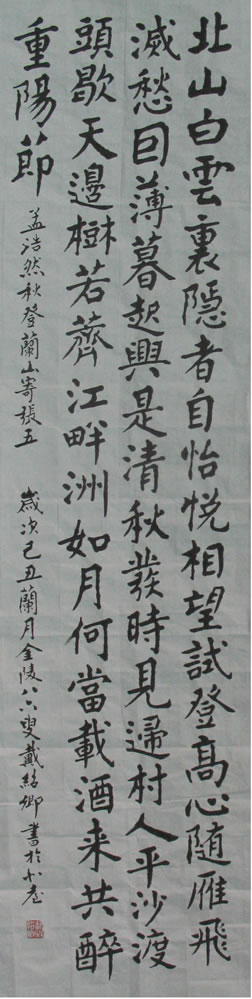 北山白雲裏隐者自怡悦相望試登高心隨雁飛
滅愁因薄暮起興是清秋發時見歸村人平沙渡
頭歇天邊樹若薺江畔洲如月何當載酒来共醉
重陽節
孟浩然秋登蘭山寄張五 歲次己丑蘭月金陵八六叟戴紹卿書於